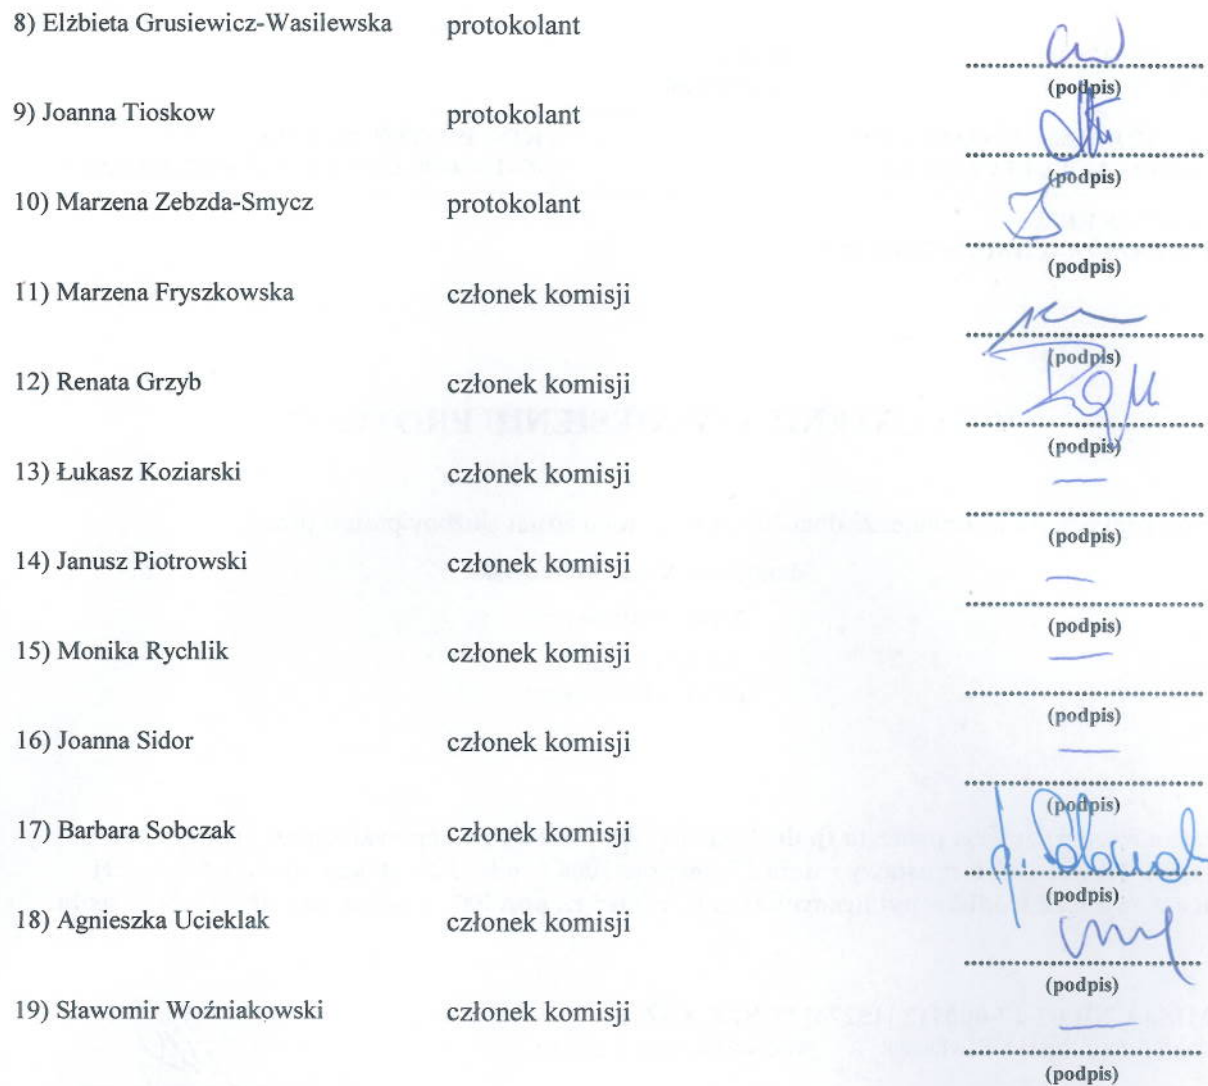 8) Elżbieta Grusiewicz-Wasilewska protokolant
(podpis)
9) Joanna Tioskow protokolant
(podpis)
10) Marzena Zebzda-Smycz protokolant
(podpis)
11) Marzena Fryszkowska członek komisji
(podpis)
12) Renata Grzyb członek komisji
(podpis)
13) Łukasz Koziarski członek komisji
(podpis)
14) Janusz Piotrowski członek komisji
(podpis)
15) Monika Rychlik członek komisji
(podpis)
16) Joanna Sidor członek komisji
(podpis)
17) Barbara Sobczak członek komisji
(podpis)
18) Agnieszka Ucieklak członek komisji
(podpis)
19) Sławomir Woźniakowski członek komisji
(podpis)